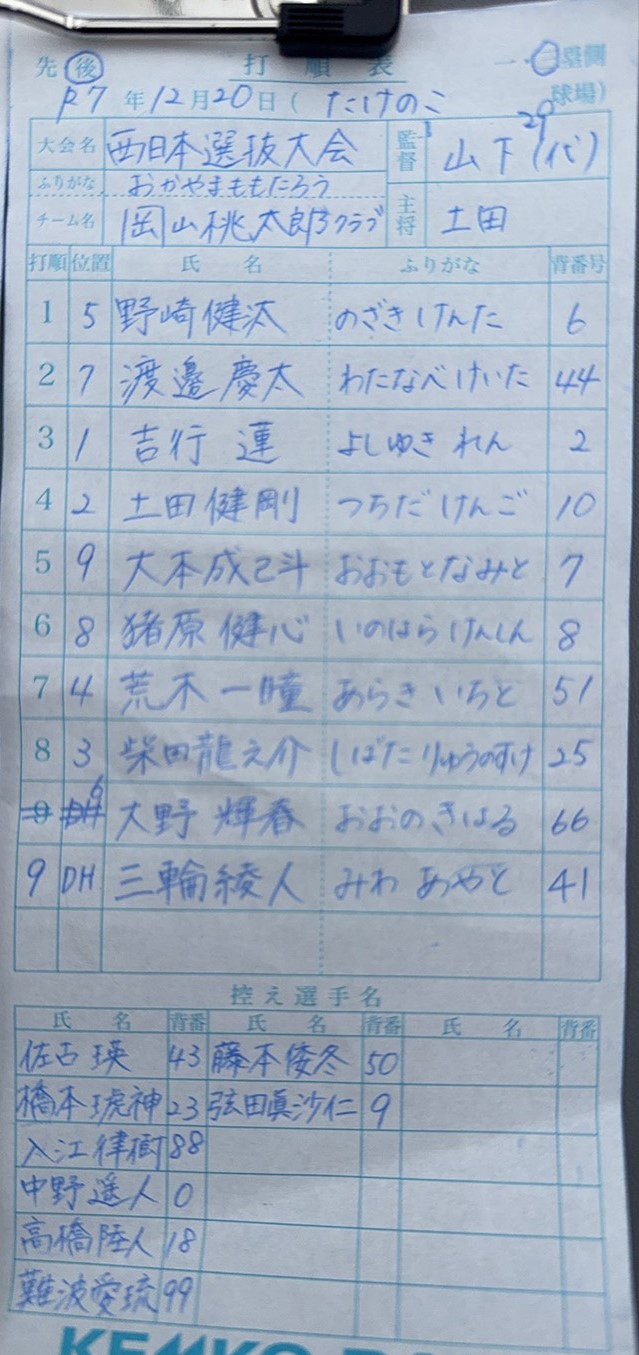 先 後 打順表 一・三塁側
R7年12月20日(たけのこ 球場)
大会名 西日本選抜大会 監督 山下(代) 29
ふりがな おかやまももたろう
チーム名 岡山桃太郎クラブ 主将 土田
打順 位置 氏名 ふりがな 背番号
1 5 野崎健汰 のざきけんた 6
2 7 渡邉慶太 わたなべけいた 44
3 1 吉行蓮 よしゆきれん 2
4 2 土田健剛 つちだけんご 10
5 9 大本成己斗 おおもとなみと 7
6 8 猪原健心 いのはらけんしん 8
7 4 荒木一瞳 あらきいちと 51
8 3 柴田龍之介 しばたりゅうのすけ 25
9 DH 6 大野輝春 おおのきはる 66
9 DH 三輪綾人 みわあやと 41
控え選手名
氏名 背番 氏名 背番 氏名 背番
佐古瑛 43 藤本倭冬 50
橋本琥神 23 弦田眞沙仁 9
入江律樹 88
中野遥人 0
高橋陸人 18
難波愛琉 99